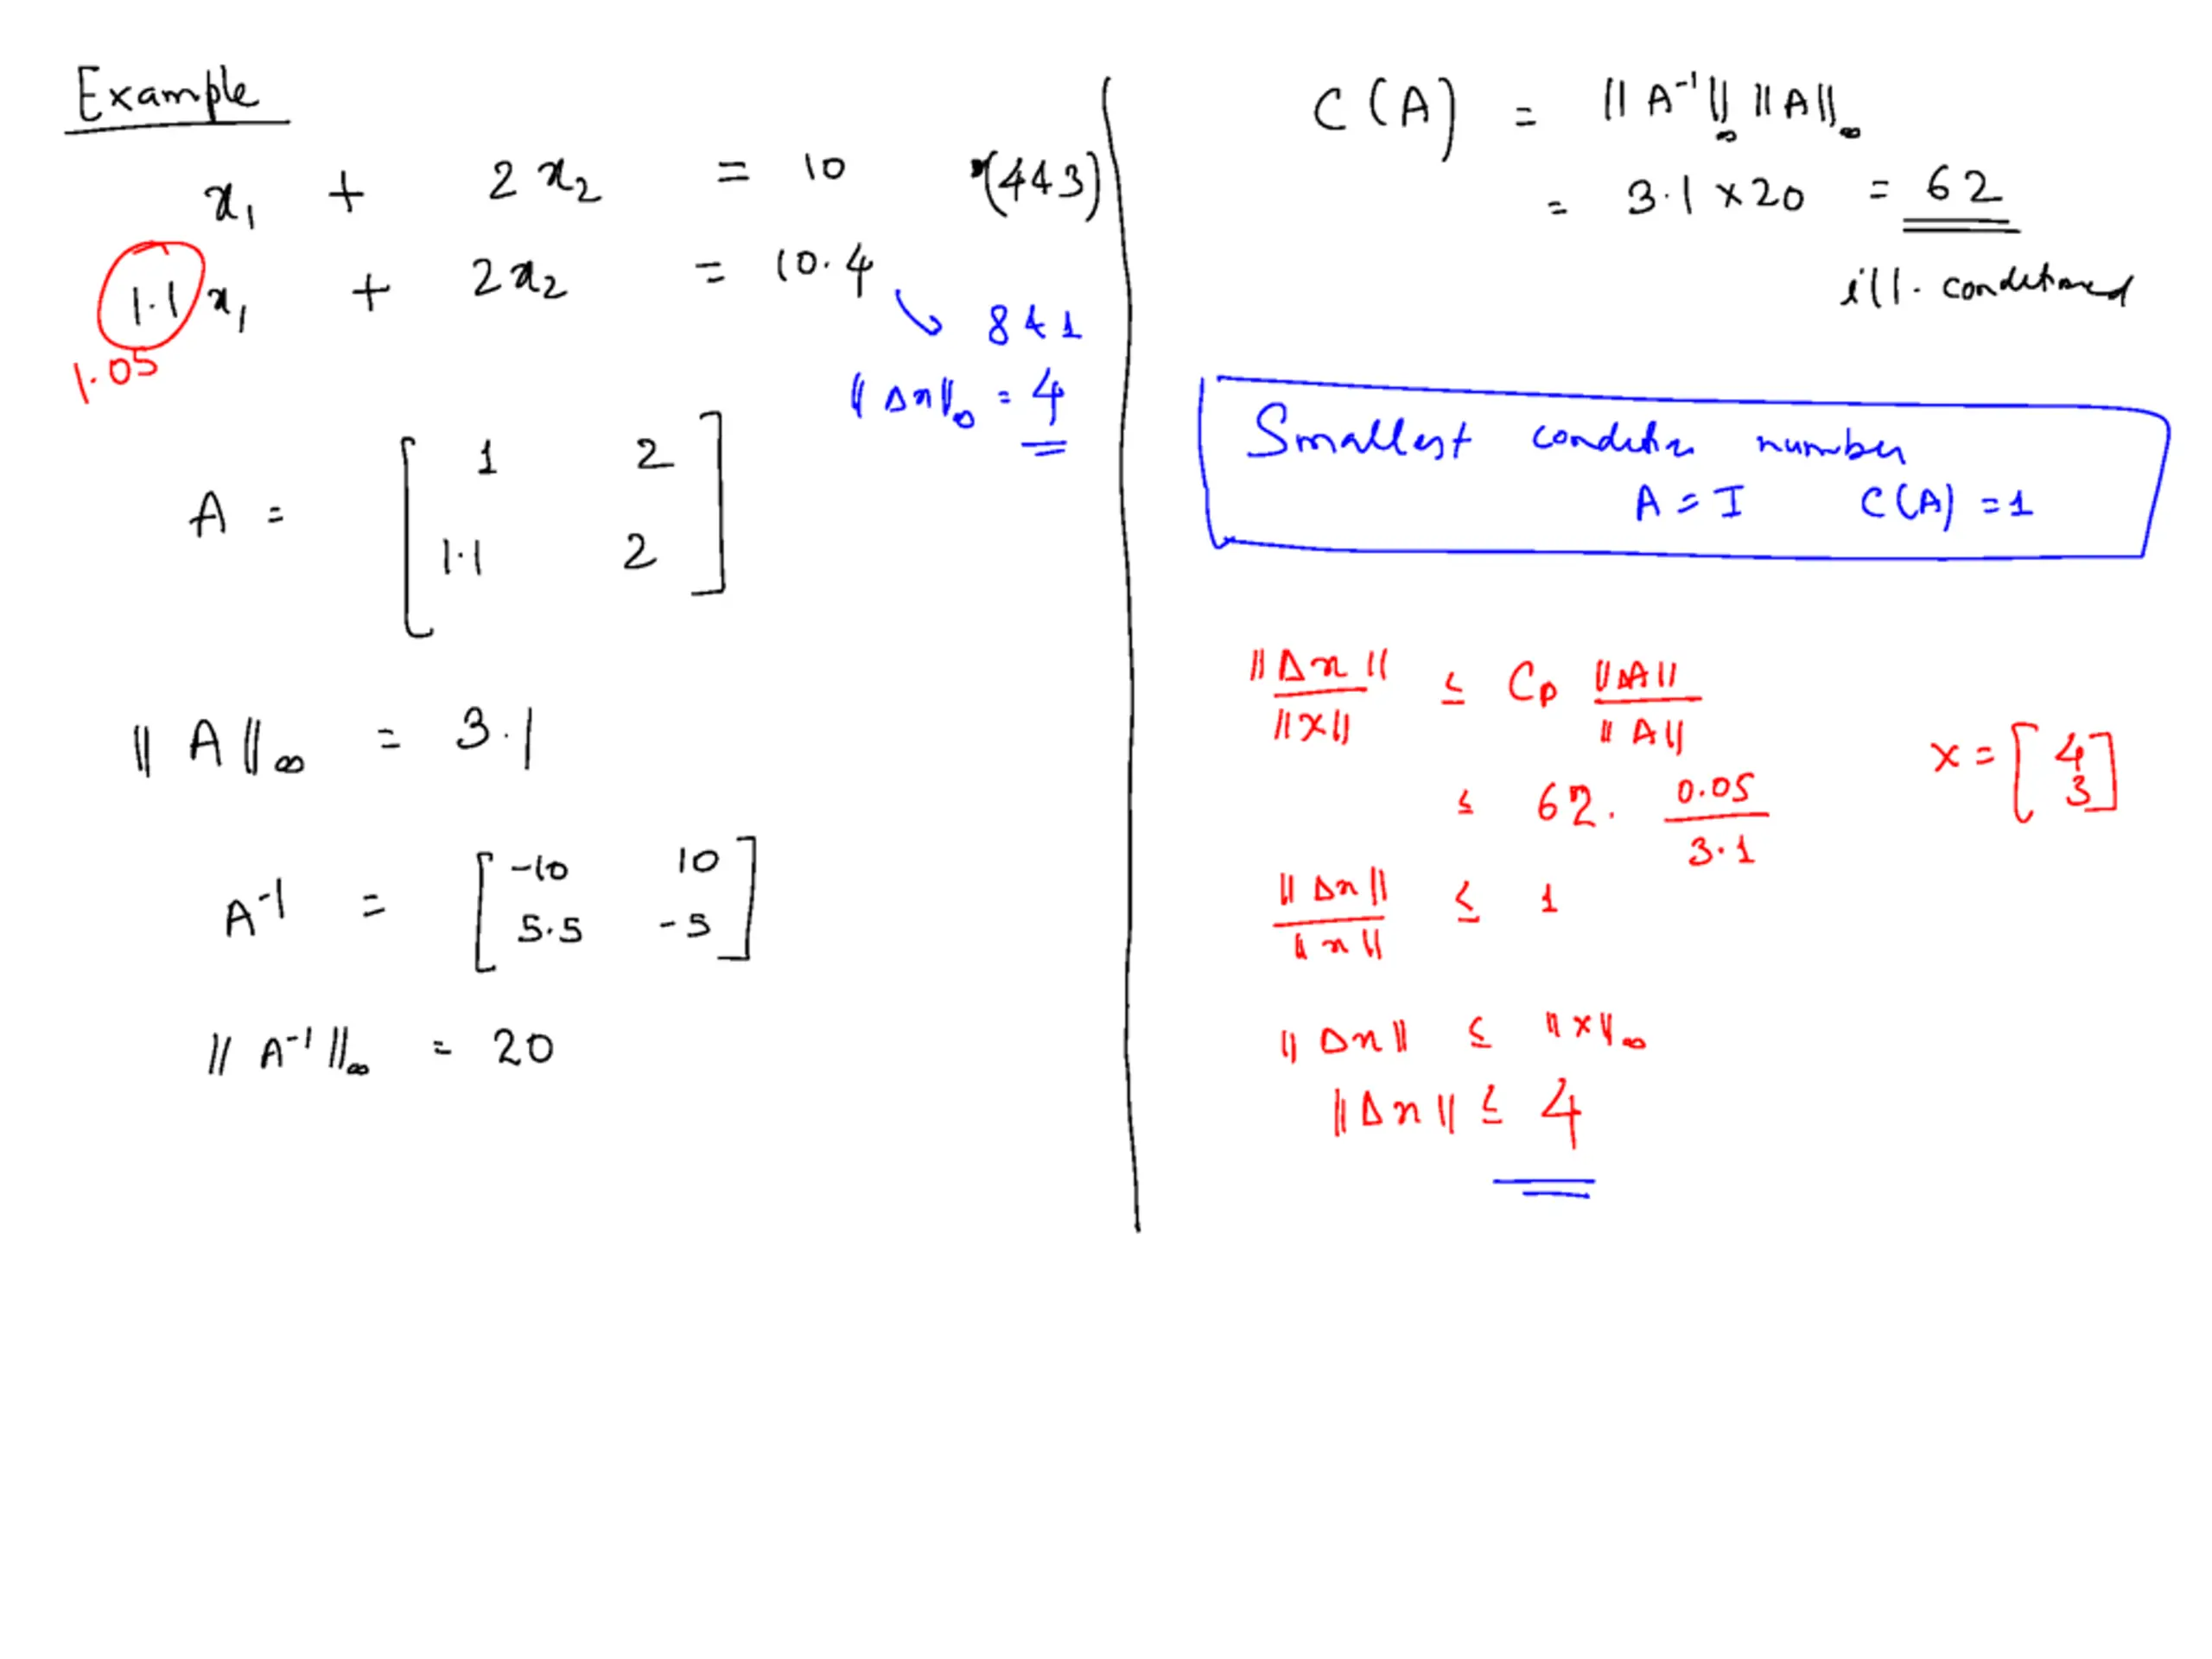 Example
x₁ + 2x₂ = 10 (4 & 3)
1.1 x₁ + 2x₂ = 10.4
1.05
8 & 1
‖Δx‖∞ = 4
A = [ 1 2
1.1 2 ]
‖A‖∞ = 3.1
A⁻¹ = [ -10 10
5.5 -5 ]
‖A⁻¹‖∞ = 20
C(A) = ‖A⁻¹‖∞ ‖A‖∞
= 3.1 × 20 = 62
ill-conditioned
Smallest condition number
A = I C(A) = 1
‖Δx‖ / ‖x‖ ≤ Cp ‖ΔA‖ / ‖A‖
x = [ 4
3 ]
≤ 62. 0.05 / 3.1
‖Δx‖ / ‖x‖ ≤ 1
‖Δx‖ ≤ ‖x‖∞
‖Δx‖ ≤ 4